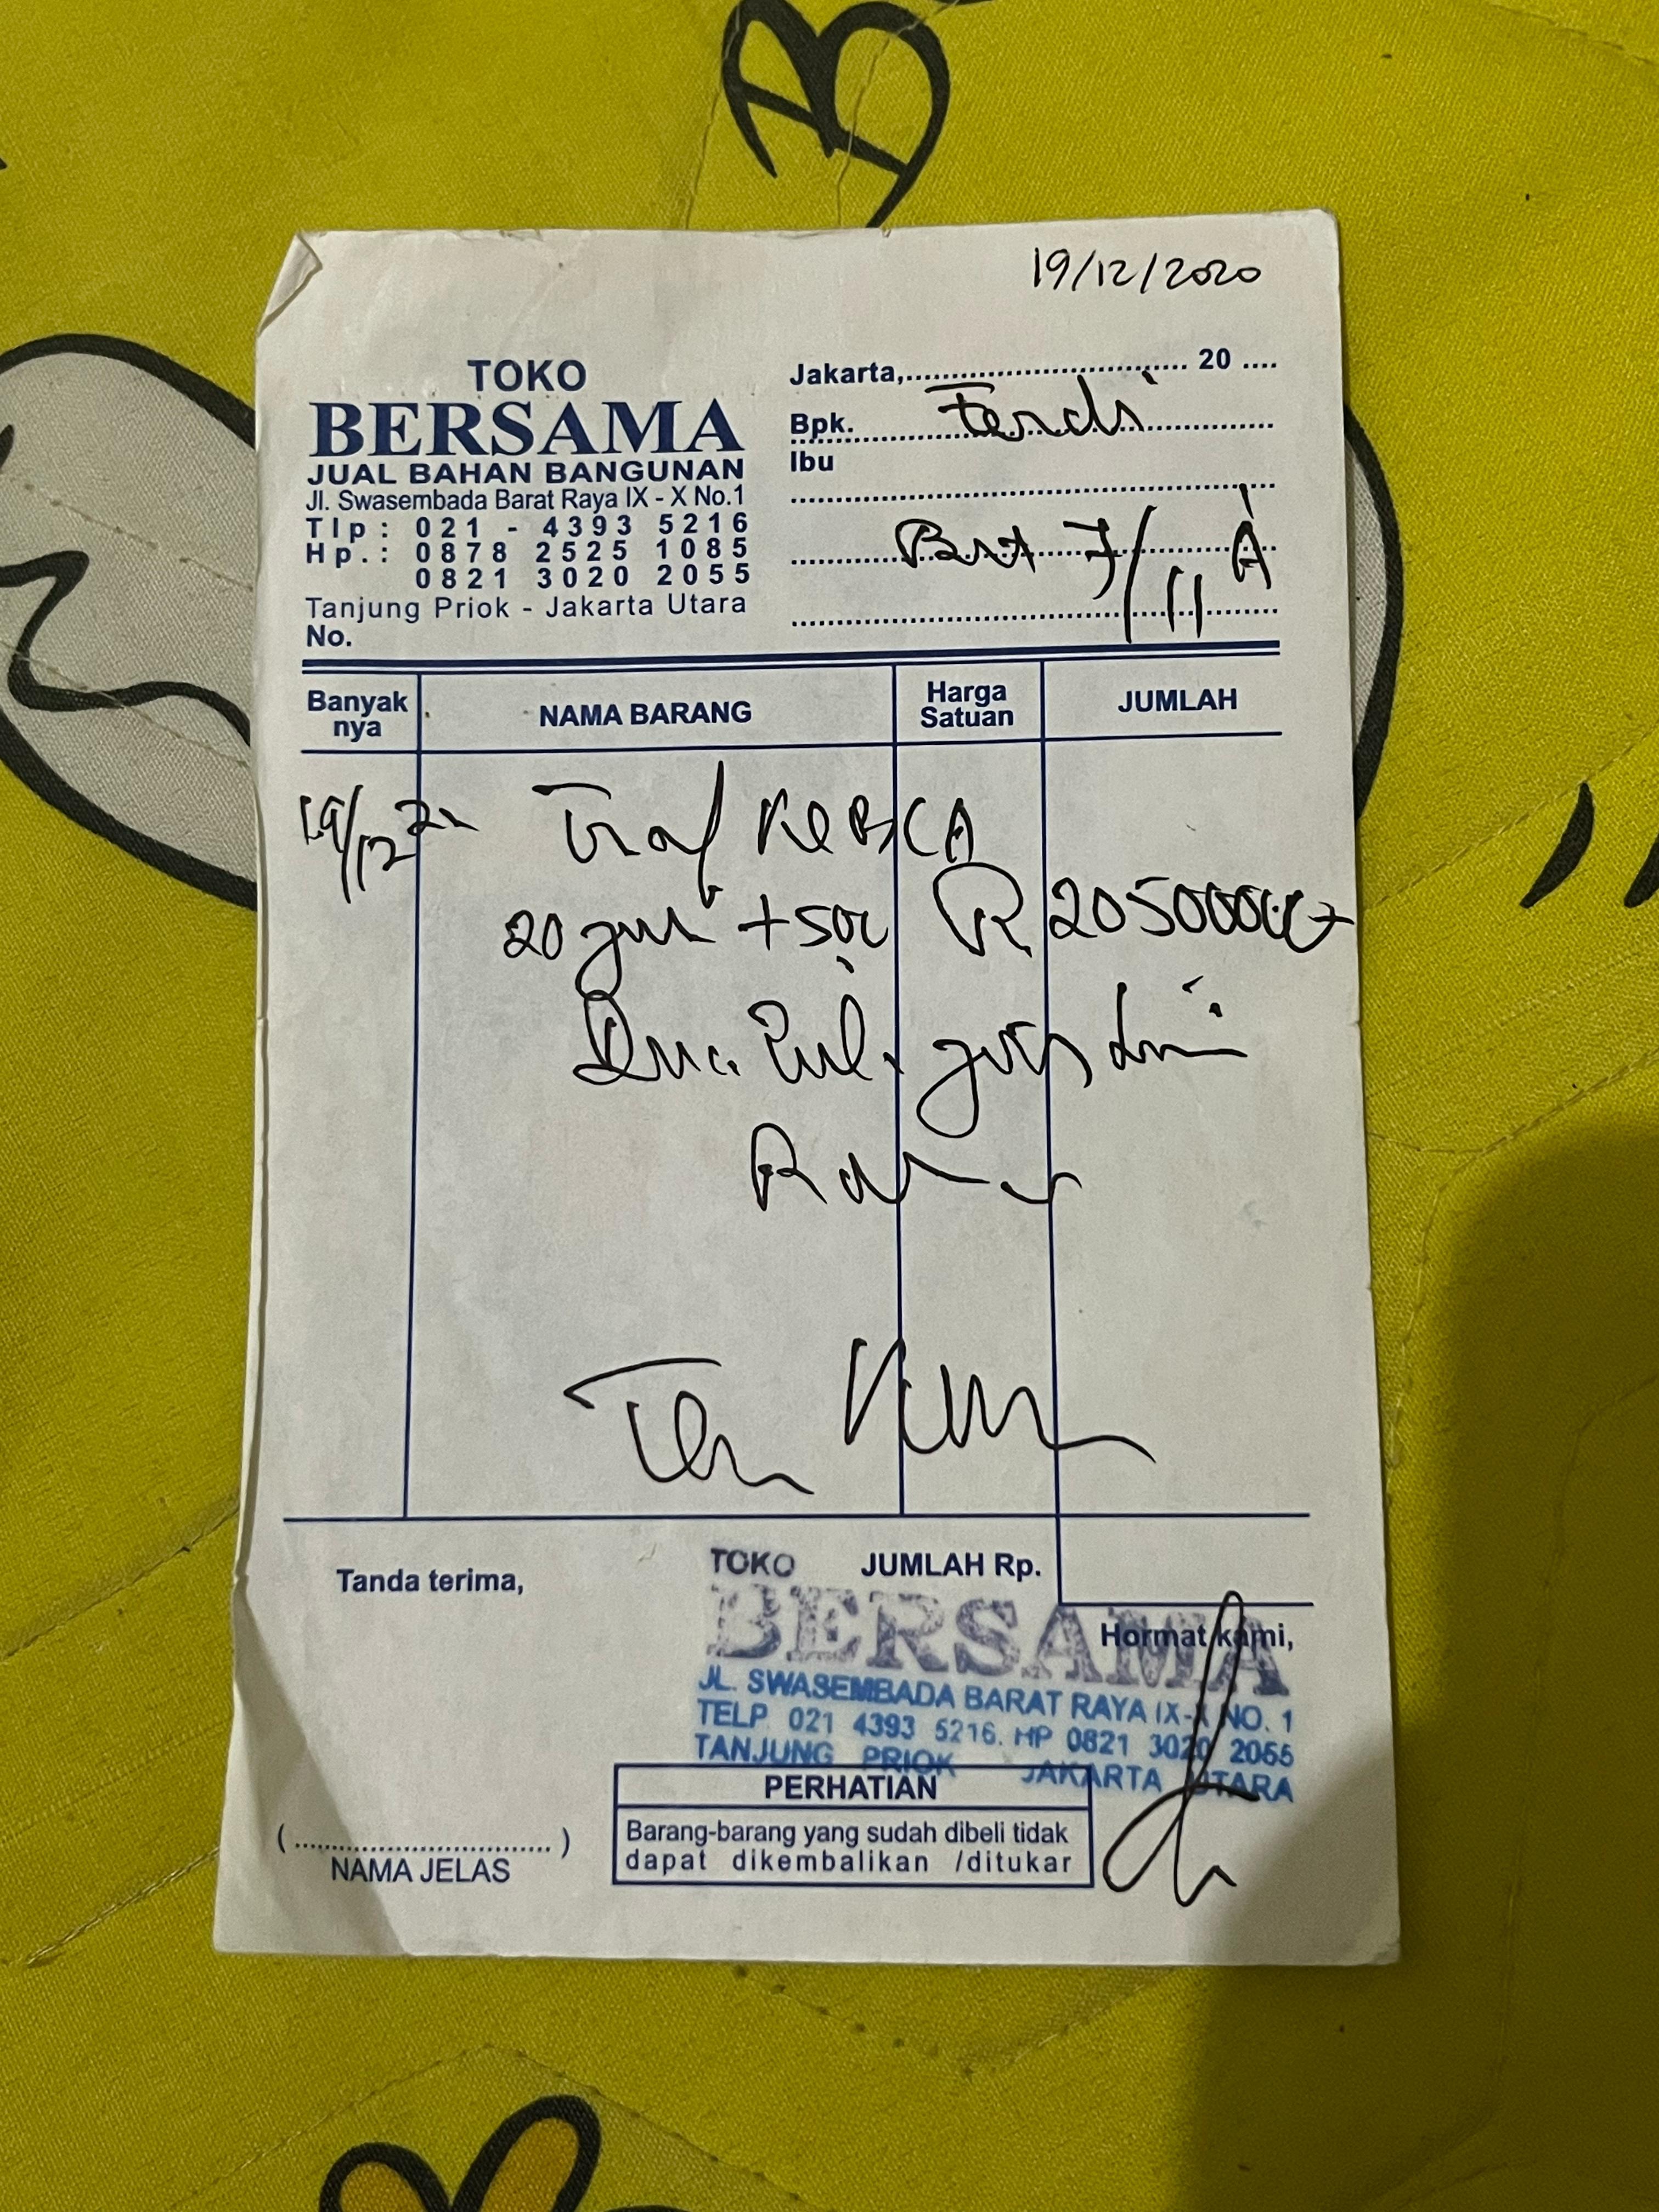 19/12/2020
TOKO
BERSAMA
JUAL BAHAN BANGUNAN
Jl. Swasembada Barat Raya IX - X No.1
Tlp : 021 - 4393 5216
Hp. : 0878 2525 1085
0821 3020 2055
Tanjung Priok - Jakarta Utara
No.
Jakarta, 20 ....
Bpk. Ferdi
Ibu
7/11 A
Banyak nya
NAMA BARANG
Harga Satuan
JUMLAH
19/12
Traf Ke BCA
20 + 500
Tanda terima,
JUMLAH Rp.
Hormat kami,
TOKO
BERSAMA
JL. SWASEMBADA BARAT RAYA IX-X NO. 1
TELP 021 4393 5216. HP 0821 3020 2055
TANJUNG PRIOK JAKARTA UTARA
PERHATIAN
Barang-barang yang sudah dibeli tidak
dapat dikembalikan /ditukar
( .............................. )
NAMA JELAS